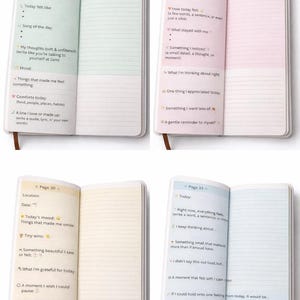 Today felt like
Song of the day:
My thoughts (soft & unfiltered)
(write like you're talking to
yourself at 2am)
Mood:
Things that made me feel
something
Comforts today:
(food, people, places, habits)
A line I love or made up:
(write a quote, lyric, or your own
words)
How today felt:
(a few words, a sentence, or even
just a vibe)
What stayed with me
Something I noticed:
(a small detail, a thought, or
moment)
What I'm thinking about right
One thing I appreciated today
Something I want less of:
A gentle reminder to myself
Page 30
Location:
Date:
Today's mood:
Things that made me smile
Tiny wins:
Something beautiful I saw
or felt:
What I'm grateful for today
A moment I wish I could
pause:
Page 31
Today
Right now, everything feels...
(write a word, a sentence, or
I keep thinking about...
Something small that mattered
more than it should have:
I didn't say this out loud, but...
A moment that felt soft
If I could hold onto one feeling